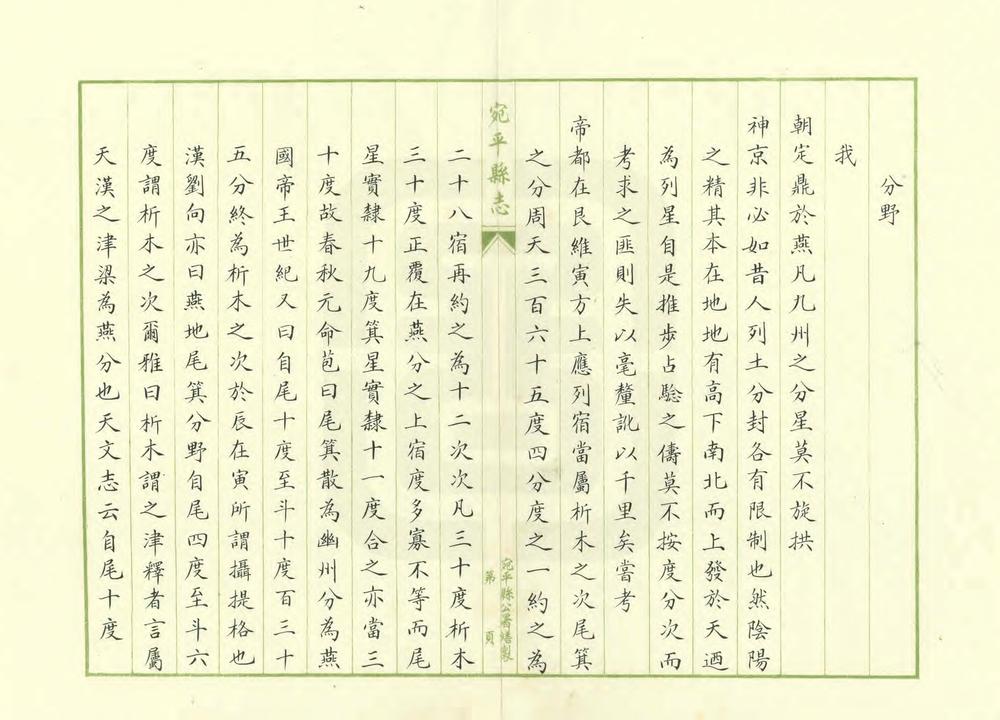 分野
我
朝定鼎於燕凡九州之分星莫不旋拱
神京非必如昔人列土分封各有限制也然陰陽
之精其本在地地有高下南北而上發於天迺
為列星自是推步占驗之儔莫不按度分次而
考求之匪則失以毫釐訛以千里矣嘗考
帝都在艮維寅方上應列宿當屬析木之次尾箕
之分周天三百六十五度四分度之一約之為
宛平縣志
第 頁
宛平縣公署繕製
二十八宿再約之為十二次次凡三十度析木
三十度正覆在燕分之上宿度多寡不等而尾
星實隸十九度箕星實隸十一度合之亦當三
十度故春秋元命苞曰尾箕散為幽州分為燕
國帝王世紀又曰自尾十度至斗十度百三十
五分終為析木之次於辰在寅所謂攝提格也
漢劉向亦曰燕地尾箕分野自尾四度至斗六
度謂析木之次爾雅曰析木謂之津釋者言屬
天漢之津梁為燕分也天文志云自尾十度